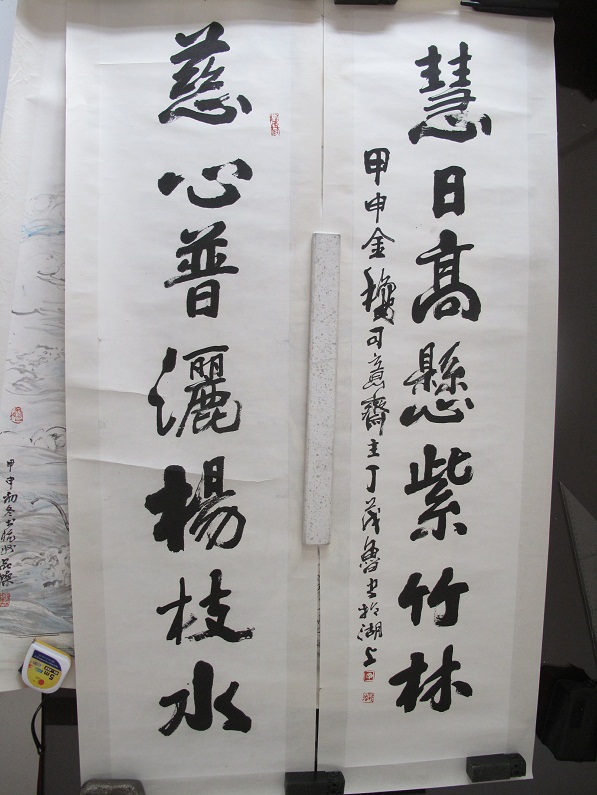 慧日高懸紫竹林
甲申金龝可意齋主丁茂魯書於湖上
慈心普灑楊枝水
甲申初冬